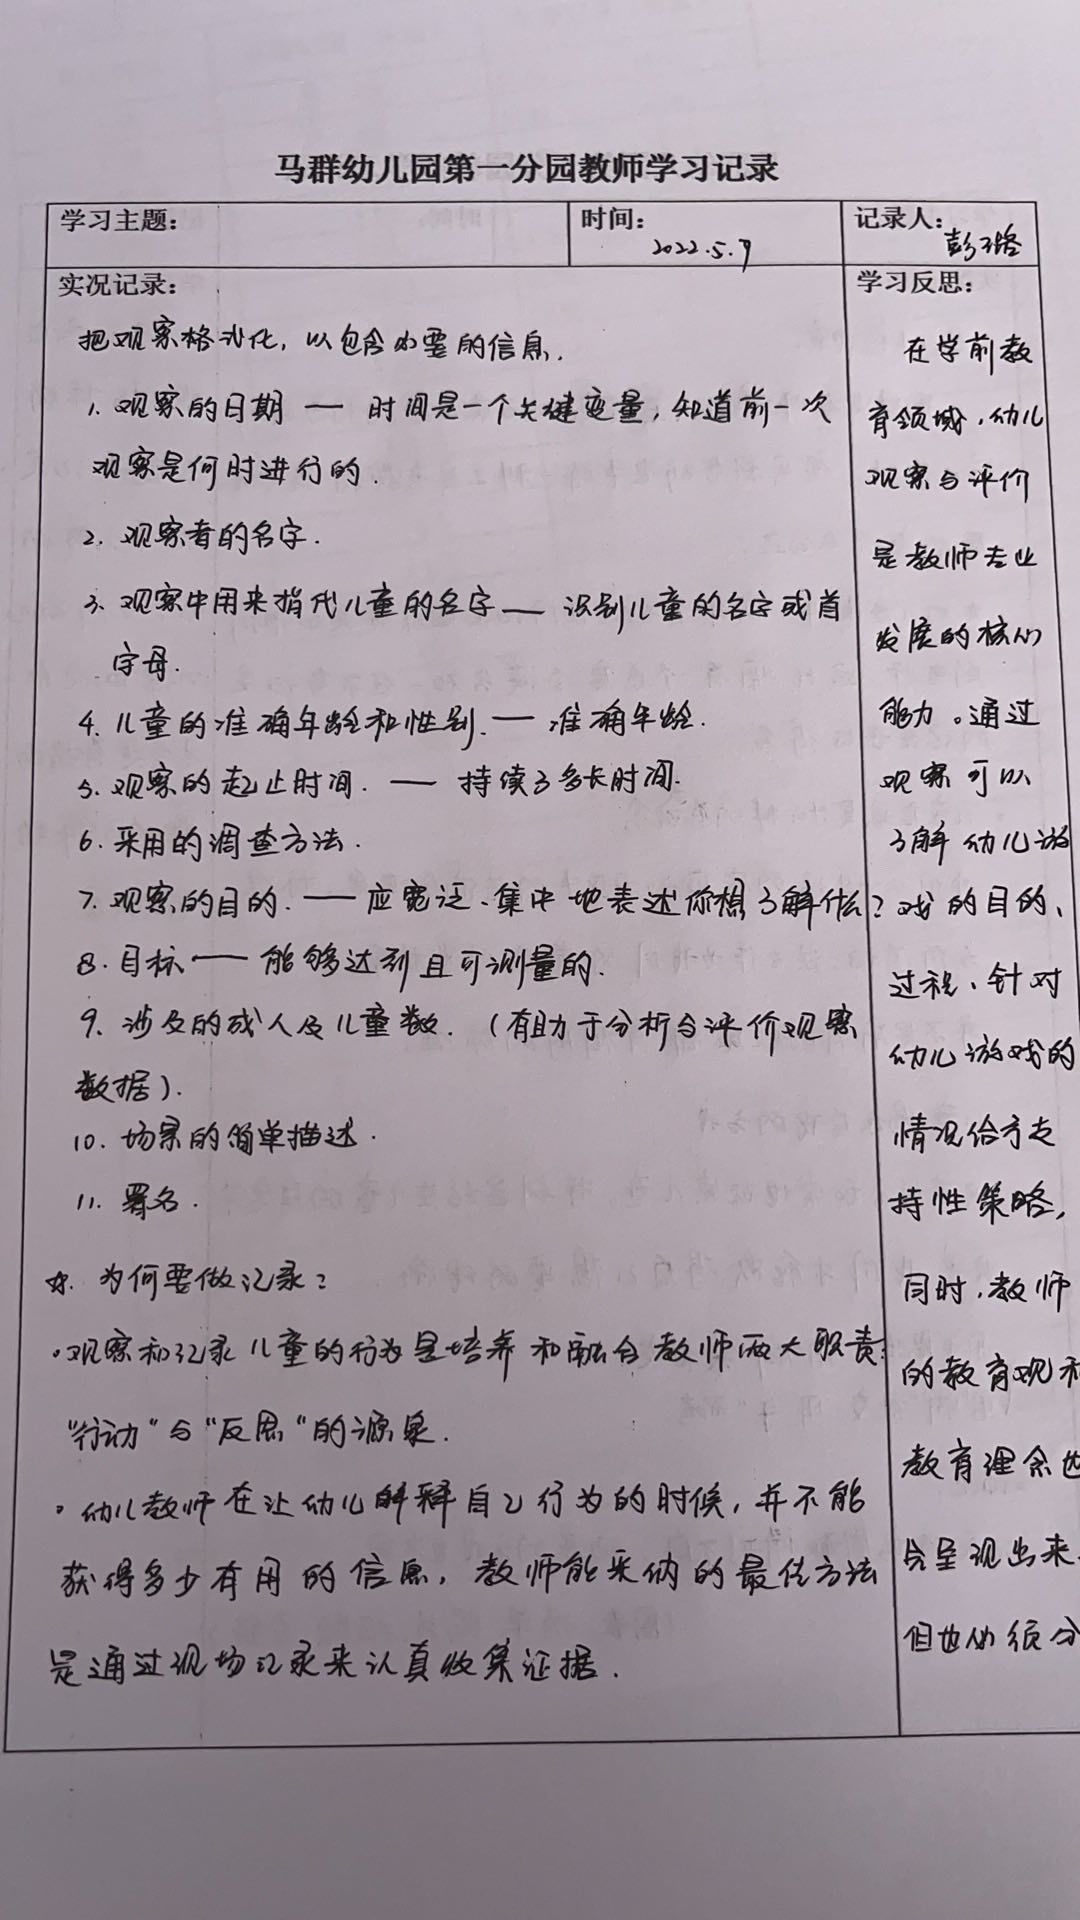 马群幼儿园第一分园教师学习记录
学习主题：
时间：
2022.5.9
记录人：
彭璐
实况记录：
把观察格式化，以包含必要的信息.
1. 观察的日期 — 时间是一个关键变量，知道前一次
观察是何时进行的.
2. 观察者的名字.
3. 观察中用来指代儿童的名字 — 识别儿童的名字或首
字母.
4. 儿童的准确年龄和性别. — 准确年龄.
5. 观察的起止时间. — 持续了多长时间.
6. 采用的调查方法.
7. 观察的目的. — 应宽泛、集中地表达你想了解什么？
8. 目标 — 能够达到且可测量的.
9. 涉及的成人及儿童数.（有助于分析与评价观察
数据）.
10. 场景的简单描述.
11. 署名.
☆. 为何要做记录？
·观察和记录儿童的行为是培养和融合教师两大职责:
“行动”与“反思”的源泉.
·幼儿教师在让幼儿解释自己行为的时候，并不能
获得多少有用的信息，教师能采纳的最佳方法
是通过现场记录来认真收集证据.
学习反思：
在学前教
育领域，幼儿
观察与评价
是教师专业
发展的核心
能力。通过
观察可以
了解幼儿游
戏的目的、
过程、针对
幼儿游戏的
情况给予支
持性策略，
同时，教师
的教育观和
教育理念也
会呈现出来，
但也必须分